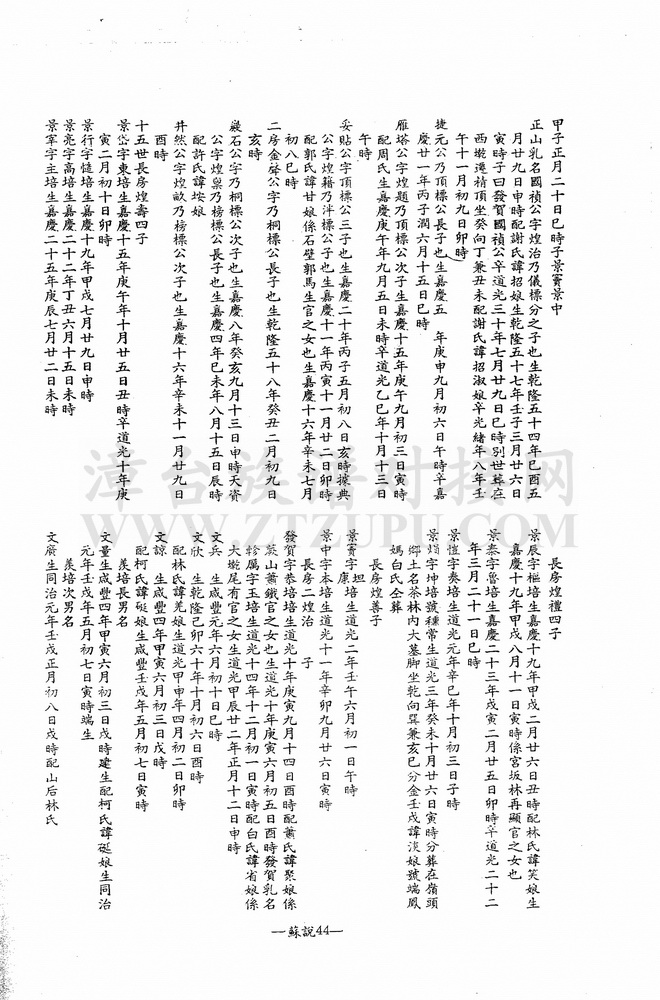 甲子正月二十日巳時子景賓景中
正山乳名國禎公字煌治乃儀標分之子也生乾隆五十四年己酉五
月廿九日申時配謝氏諱招娘生乾隆五十七年壬子三月廿六日
寅時子曰發賀國禎公卒道光三十年七月廿九日巳時別世葬在
西坡過精頂坐癸向丁兼丑未配謝氏諱招淑娘卒光緒年八年壬
午十一月初九日卯時
捷元公乃頂標公長子也生嘉慶五 年庚申九月初六日午時卒嘉
慶廿一年丙子潤六月十五日巳時
雁塔公字煌題乃頂標公次子生嘉慶十五年庚午九月初三日寅時
配周氏生嘉慶庚午年九月五日未時卒道光乙巳年十月十三日
午時
妥貼公字頂標公三子也生嘉慶二十年丙子五月初八日亥時據典
公字煌籍乃泮標公子也生嘉慶十一年丙寅十一月廿二日卯時
配郭氏諱甘娘係石壁郭馬生官之女也生嘉慶十六年辛未七月
初八巳時
二房金聲公字乃桐標公長子也生乾隆五十八年癸丑二月初九日
亥時
巖石公字乃桐標公次子也生嘉慶八年癸亥九月十三日申時天資
公字煌梟乃榜標公長子也生嘉慶四年巳未年八月十五日辰時
配許氏諱垵娘
井然公字煌畝乃榜標公次子也生嘉慶十六年辛未十一月廿九日
酉時
十五世長房煌壽四子
景岱字東培生嘉慶十五年庚午年十月廿五日丑時卒道光十年庚
寅二月初十日卯時
景行字慥培生嘉慶十九年甲戌七月廿九日申時
景亮字高培生嘉慶二十二年丁丑六月十五日未時
景宰字主培生嘉慶二十五年庚辰七月廿二日未時
長房煌禮四子
景辰字樞培生嘉慶十九年甲戌二月廿六日丑時配林氏諱笑娘生
嘉慶十九年甲戌八月十一日寅時係宮坂林再顯官之女也
景泰字魯培生嘉慶二十三年戊寅二月廿五日卯時卒道光二十二
年三月二十一日巳時
景愷字奏培生道光元年辛巳年十月初三日子時
景頫字坤培號穩常生道光三年癸未十月廿六日寅時分葬在嶺頭
鄉土名茶林內大墓脚坐乾向巽兼亥巳分金壬戌諱淡娘號端鳳
媽白氏仝葬
長房煌善子
景賓字坦康培生道光二年壬午六月初一日午時
景中字本培生道光十一年辛卯九月廿六日寅時
長房二煌治 子
發賀字恭培培生道光十年庚寅九月十四日酉時配蕭氏諱聚娘係
萊山蕭鐵官之女也生道光十年庚寅六月初五日酉時發賀乳名
軫屬字玉培生道光十四年十二月初一日寅時配白氏諱省娘係
大坡尾有官之女生道光甲辰廿二年正月十二日申時
文兵 生道光六年元月十日巳時
文欣 生乾隆己卯六十年十月初六日酉時
配林氏諱羗娘生道光甲申年四月初二日卯時
文諒 生咸豐四年甲寅六月初三日戌時
配柯氏諱硟娘生咸豐壬戌年五月初七日寅時
羨培長男名
文量生咸豐四年甲寅六月初三日戌時建生配柯氏諱硟娘生同治
元年壬戌年五月初七日寅時端生
羨培次男名
文廣生同治元年壬戌正月初八日戌時配山后林氏
—蘇説44—
漳台族谱对接网
WWW.ZTZUPU.COM